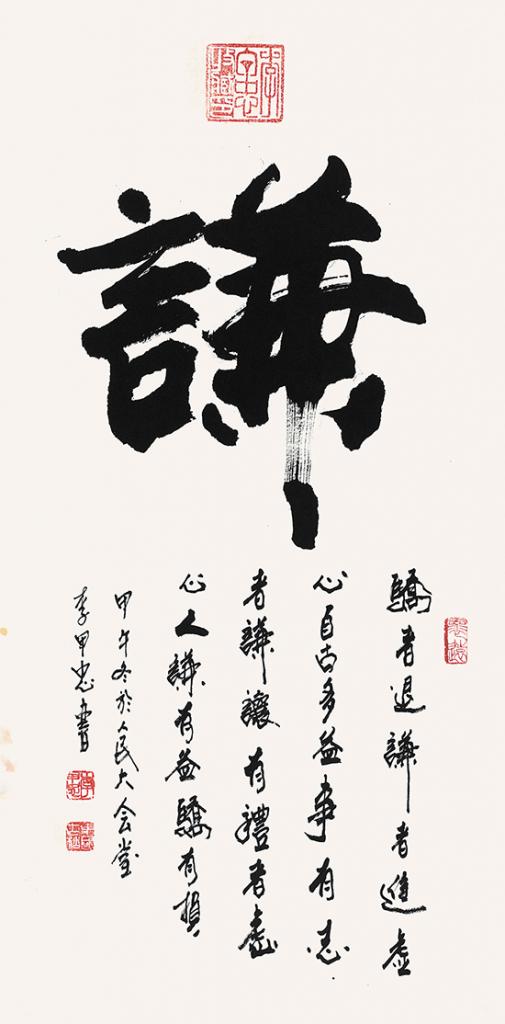 謙
驕者退謙者進虚
心自古多益事有志
者謙讓有禮者虚
心人謙有益驕有損
甲午冬於人民大会堂
李甲忠書